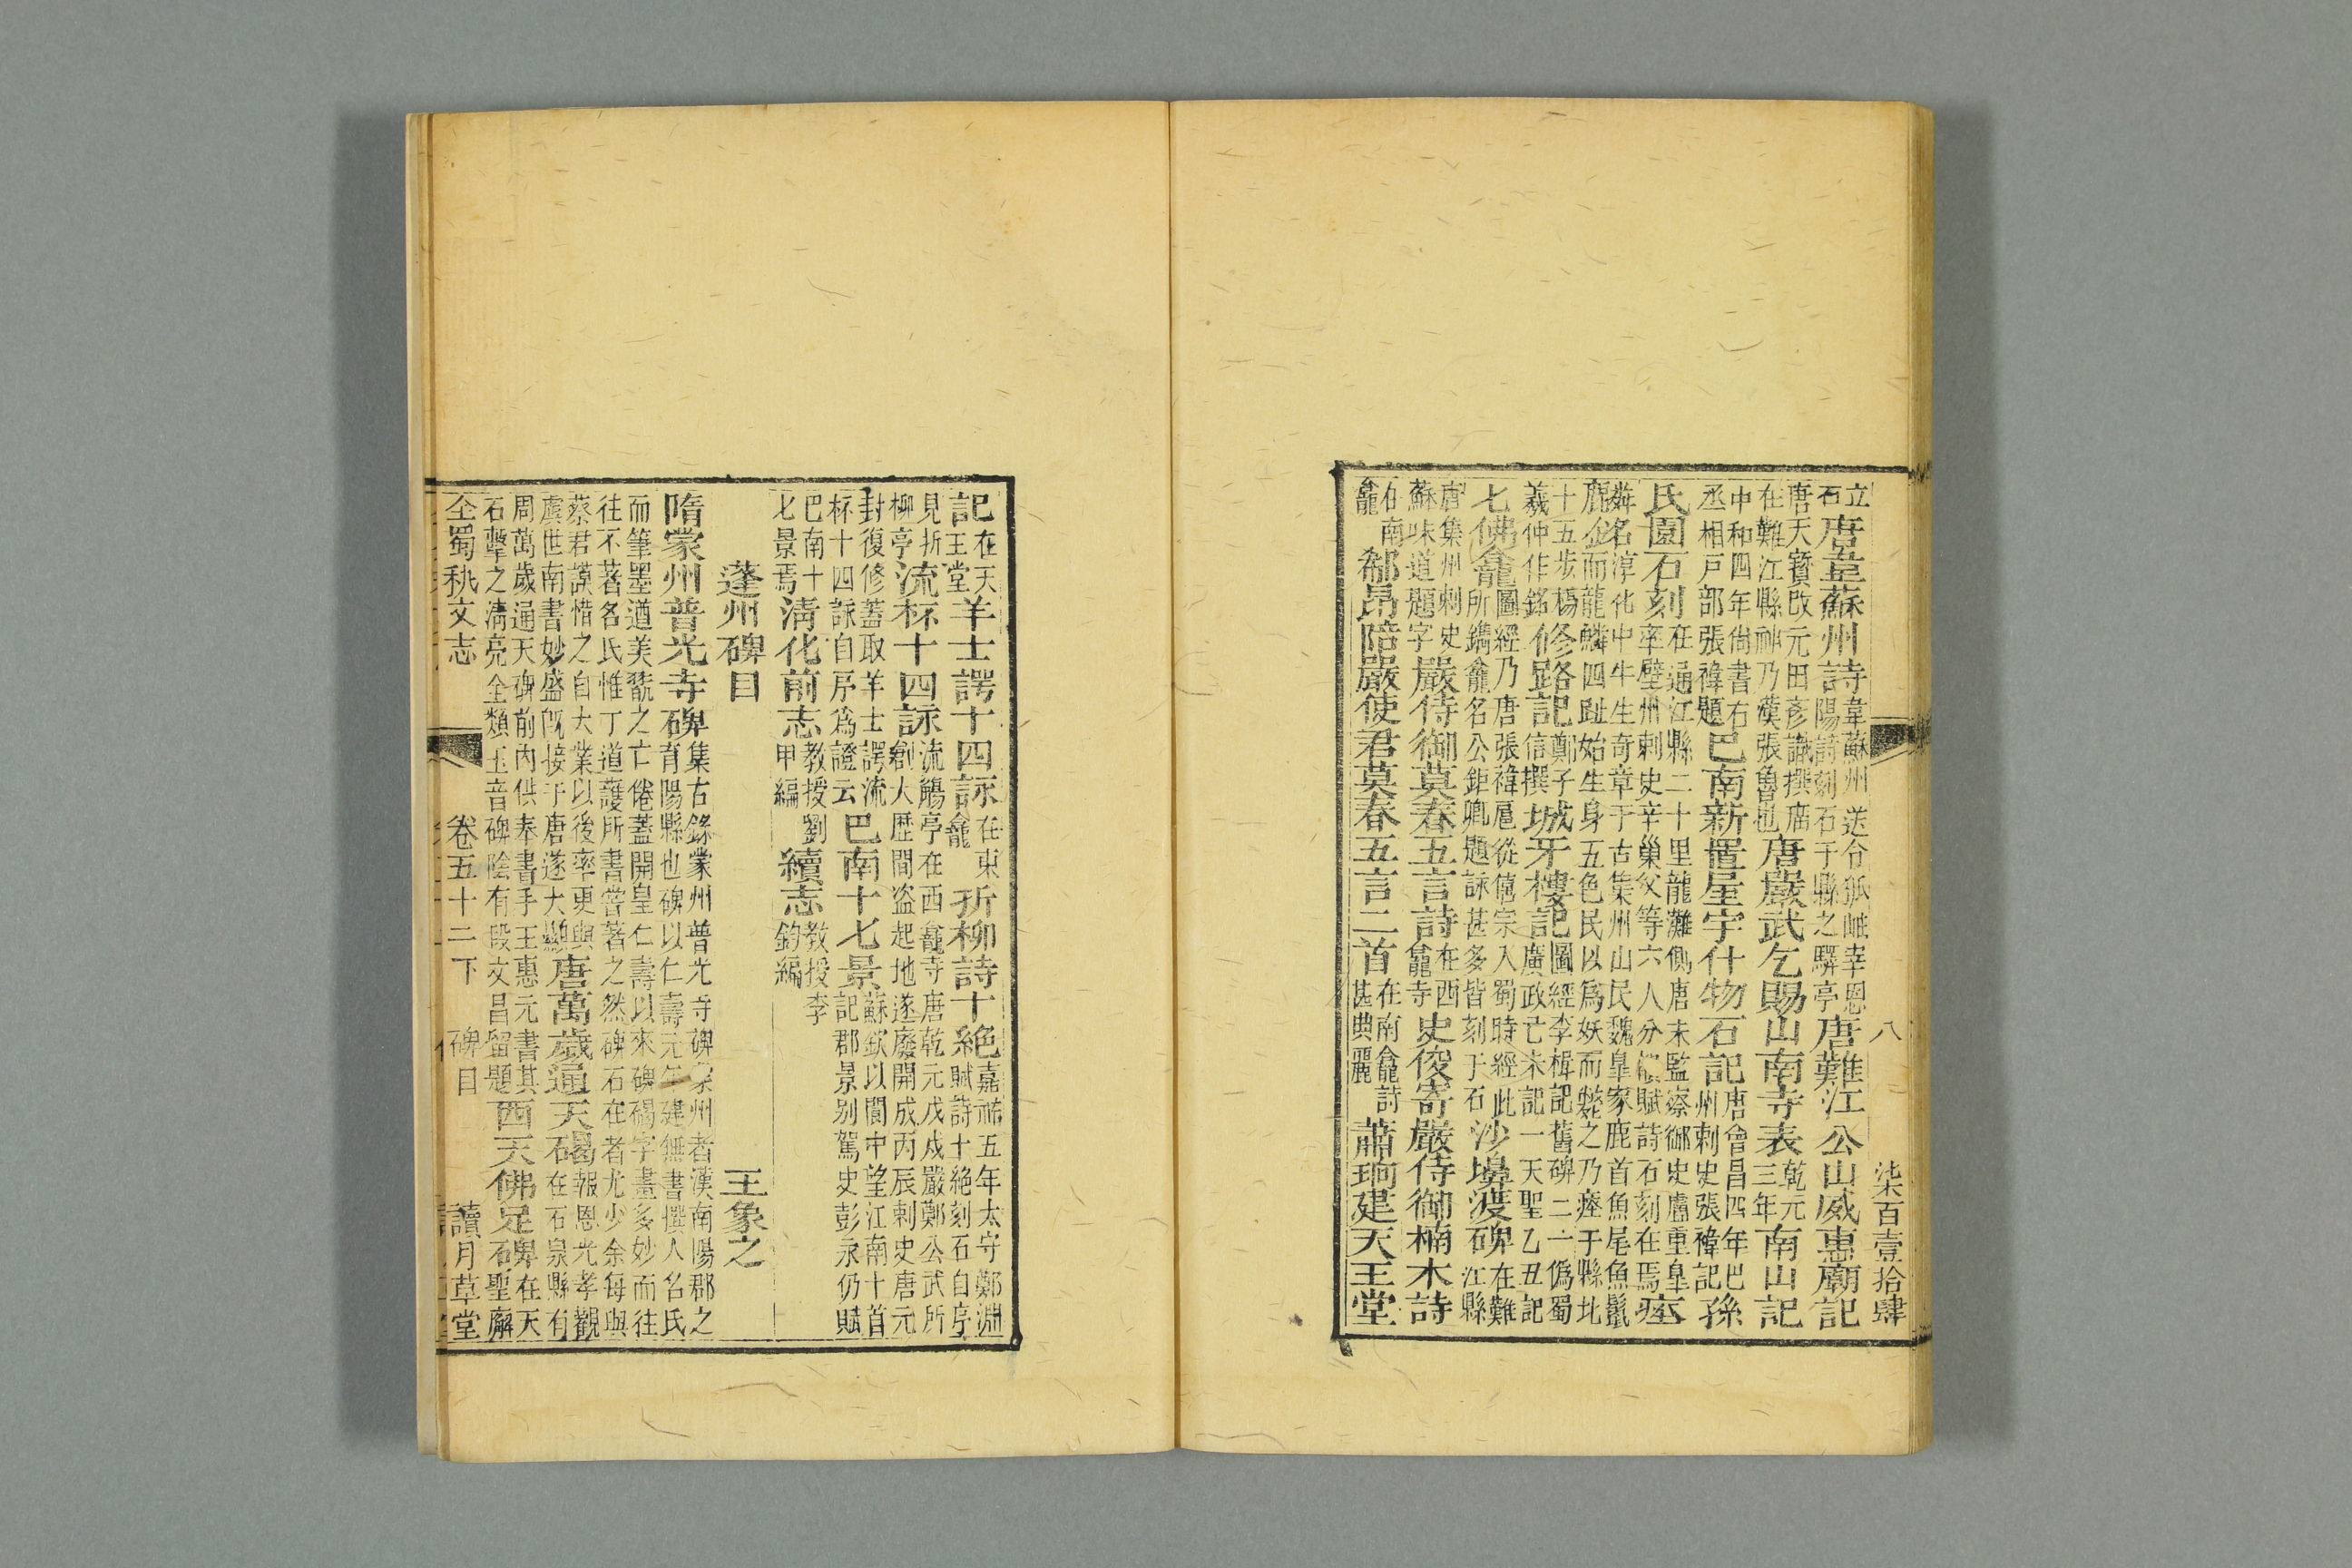 八
柒百壹拾肆
立石唐韋蘇州詩韋蘇州送令狐岫宰恩陽詩刻石于縣之驛亭唐難江公山威惠廟記
唐天寶改元田彥識撰廟在難江縣神乃漢張魯也唐嚴武乞賜山南寺表乾元三年南山記
中和四年尙書右丞相戸部張禕題巴南新置屋宇什物石記唐會昌四年巴州刺史張禕記孫
氏園石刻在通江縣二十里龍灘側唐末監察御史盧重皐率壁州刺史辛巢父等六人分賦詩石刻在焉瘞
麟名淳化中牛生奇章于古集州山民魏皐家鹿首魚尾魚鬣鹿銘而龍鱗四趾始生身五色民以爲妖而斃之乃瘞于縣北
十五步楊羲仲作銘修路記鄭子信撰城牙樓記圖經李楫記舊碑二一僞蜀廣政亡未記一天聖乙丑記
七佛龕圖經乃唐張禕扈從僖宗入蜀時經此所鐫龕名公鉅卿題詠甚多皆刻于石沙渡碑在難江縣
唐集州刺史蘇味道題字嚴侍御莫春五言詩在西龕寺史俊寄嚴侍御楠木詩
右南龕郗昂陪嚴使君莫春五言二首在南龕詩甚典麗蕭珦建天王堂
記在天王堂羊士諤十四詠在東龕折柳詩十絶嘉祐五年太守鄭淵賦詩十絶刻石自序
見折柳亭流杯十四詠流觴亭在西龕寺唐乾元戊戌嚴鄭公武所創大歴間盗起地遂廢開成丙辰刺史唐元
封復修蓋取羊士諤流杯十四詠自序爲證云巴南十七景蘇欽以閬中望江南十首記郡景别駕史彭永仍賦
巴南十七景焉淸化前志教授劉甲編續志教授李鈞編
蓬州碑目　王象之
隋蒙州普光寺碑集古錄蒙州普光寺碑蒙州者漢南陽郡之育陽縣也碑以仁壽元年建無書撰人名氏
而筆墨遒美翫之亡倦蓋開皇仁壽以來碑碣字畫多妙而往往不著名氏惟丁道護所書嘗著之然碑石在者尤少余每與
蔡君謨惜之自大業以後率更與虞世南書妙盛旣接于唐遂大顯唐萬歲通天碣報恩光孝觀在石泉縣有
周萬歲通天碑前內供奉書手王惠元書其石擊之淸亮全類玉音碑陰有段文昌留題西天佛足碑在天石聖廨
全蜀秇文志　卷五十二下　碑目　讀月草堂